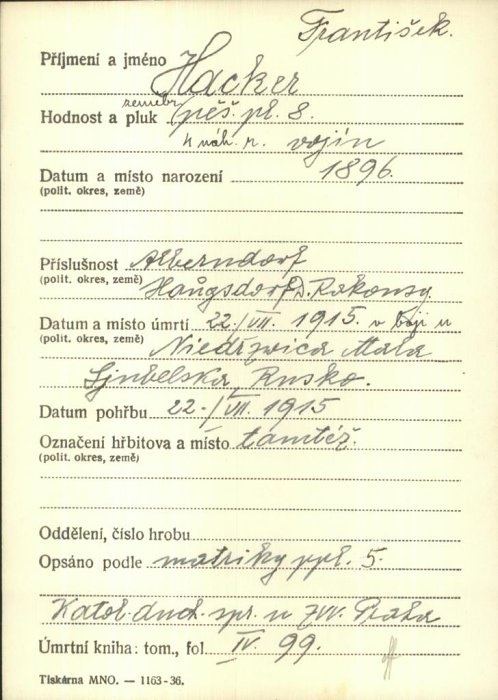 František.
Příjmení a jméno Hacker
Hodnost a pluk zeměbr. pěš. pl. 8.
k náh. r. vojín
Datum a místo narození 1896.
(polit. okres, země)
Příslušnost Alberndorf
(polit. okres, země) Haugsdorf D. Rakousy.
Datum a místo úmrtí 22./VII. 1915. v boji u
(polit. okres, země) Niedrzwica Mala
Ljubelska, Rusko.
Datum pohřbu 22./VII. 1915
Označení hřbitova a místo tamtéž.
(polit. okres, země)
Oddělení, číslo hrobu
Opsáno podle matriky ppl. 5.
Katol. duch. spr. u ZVV. Praha
Úmrtní kniha: tom., fol IV. 99.
Tiskárna MNO. — 1163-36.